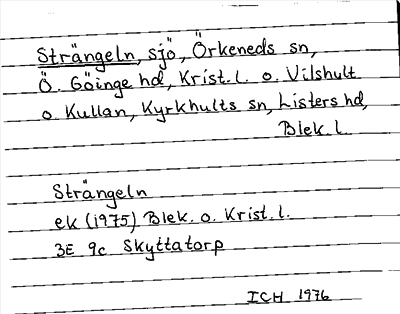 Strängeln, sjö, Örkeneds sn,
Ö. Göinge hd, Krist. l. o. Vilshult
o. Kullan, Kyrkhults sn, Listers hd,
Blek. l.
Strängeln
ek (1975) Blek. o. Krist. l.
3E 9c Skyttatorp
ICH 1976